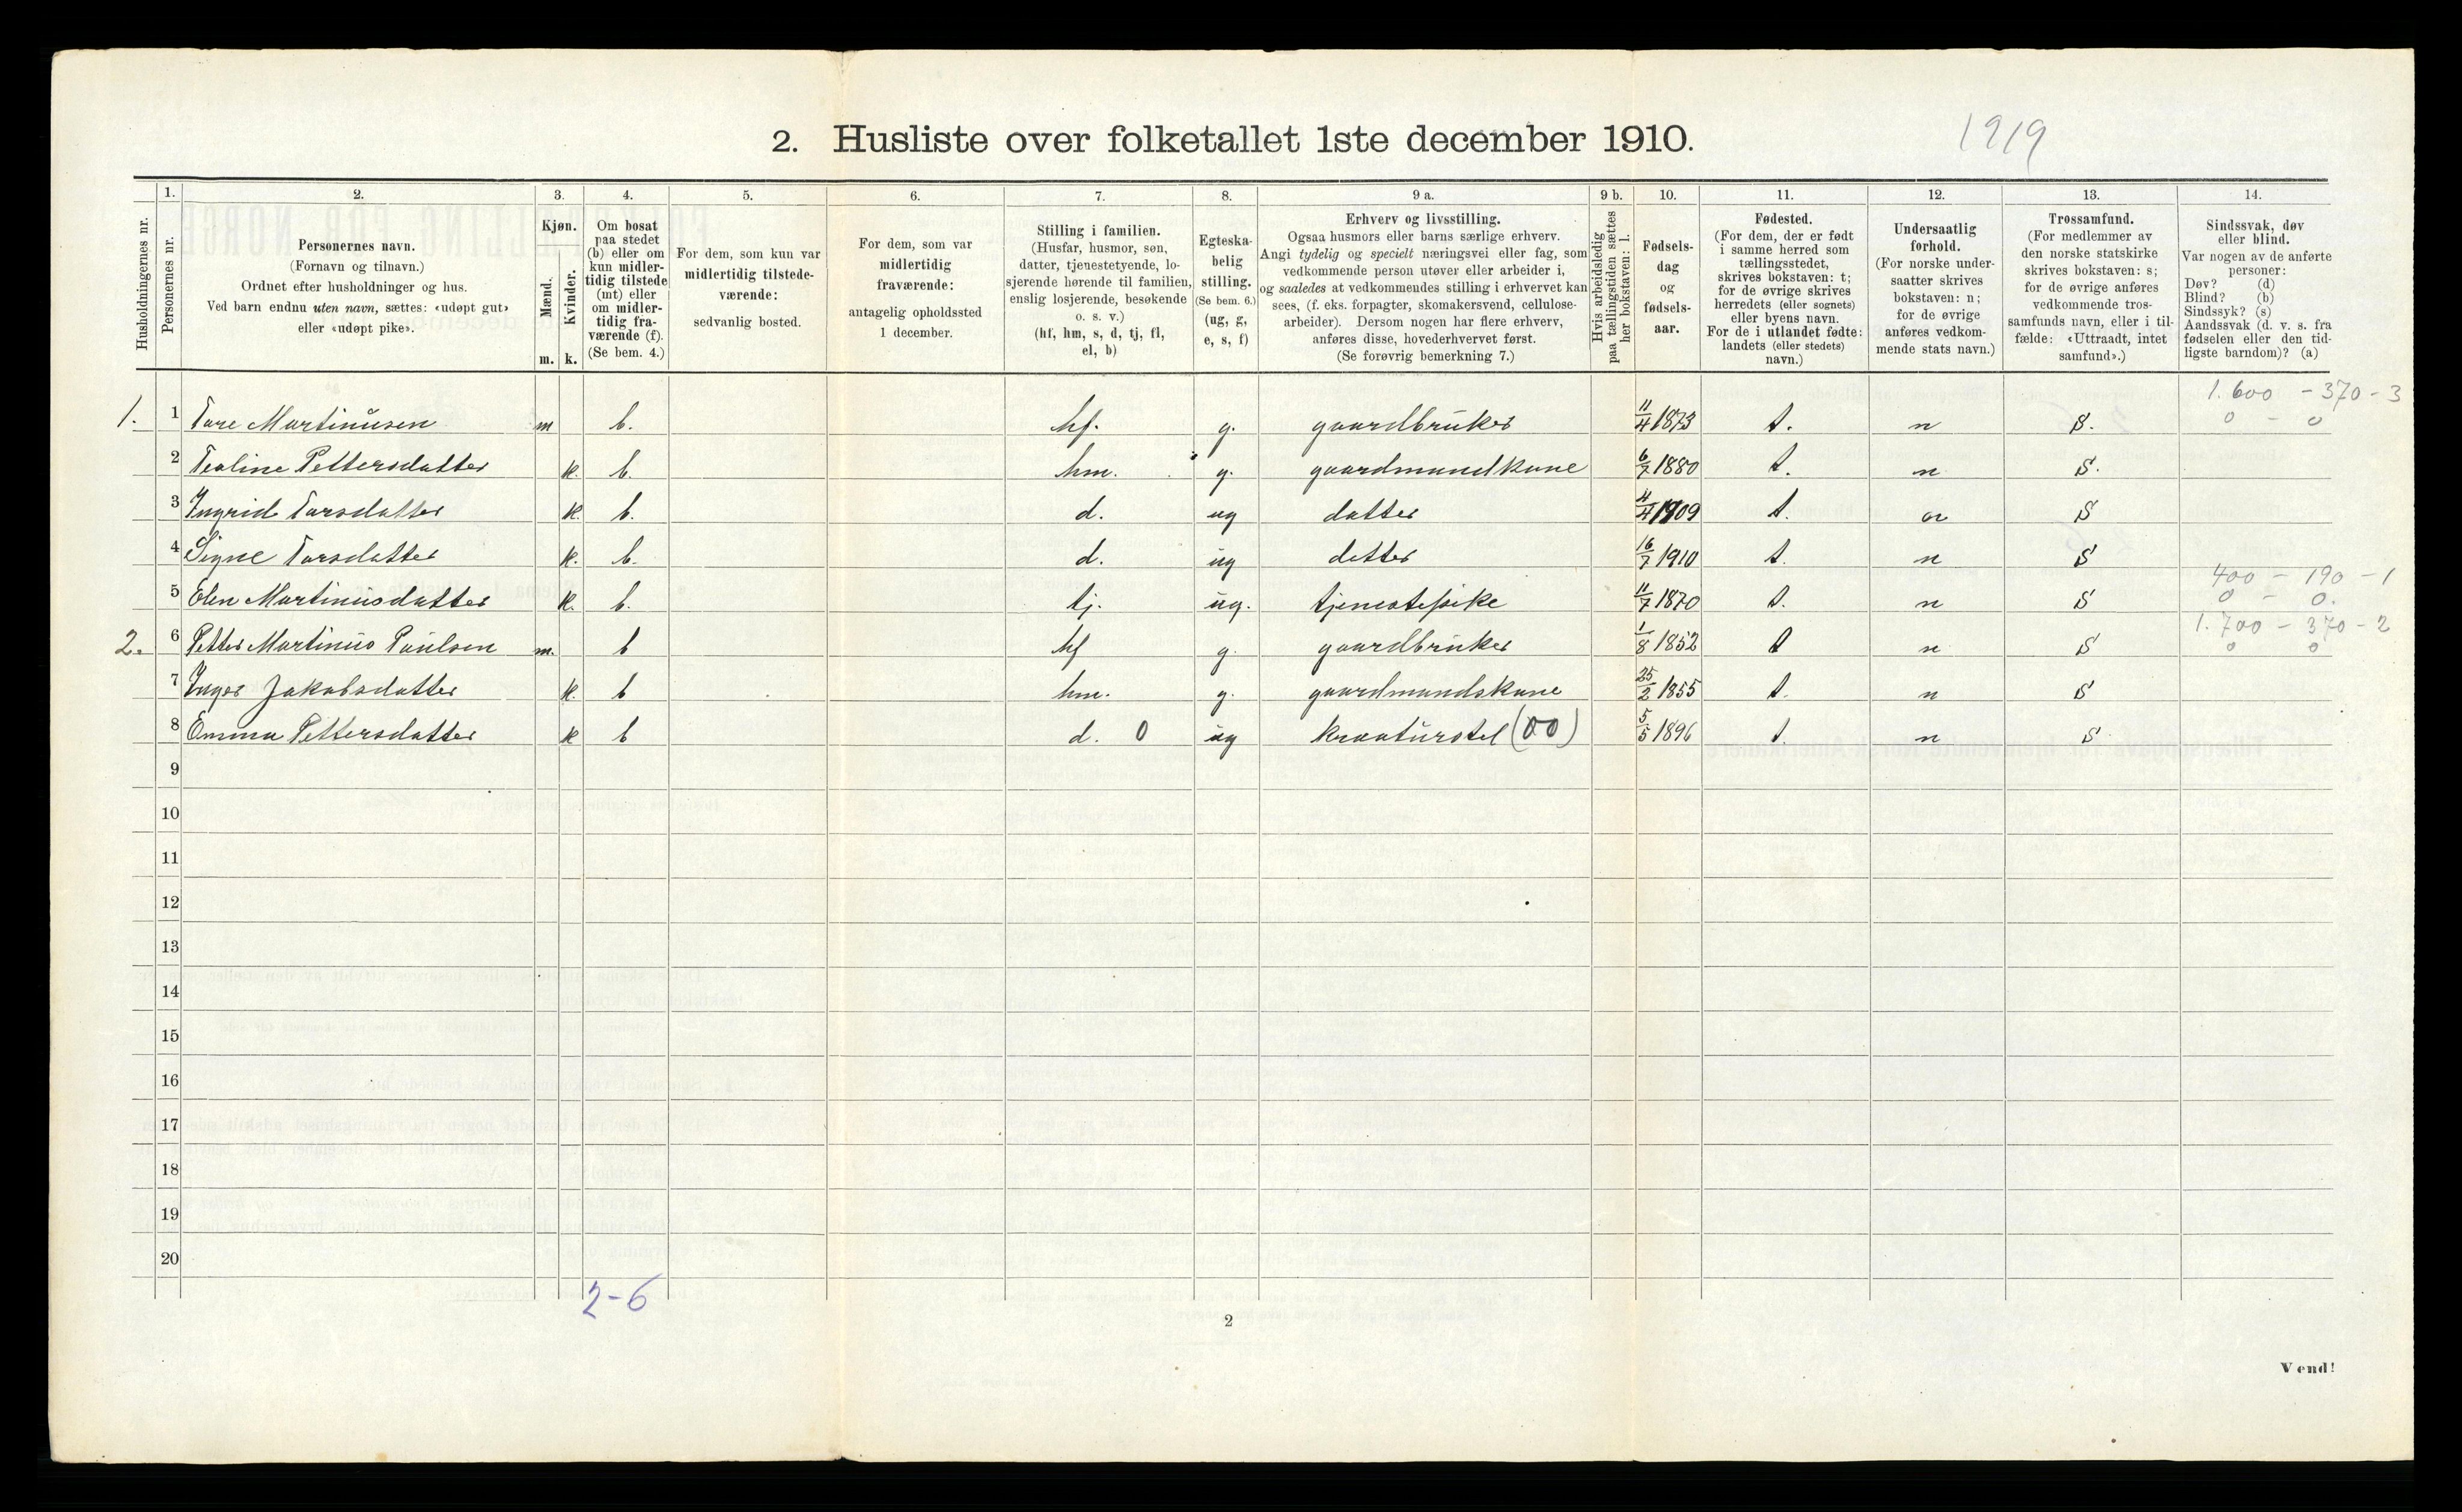 2. Husliste over folketallet 1ste december 1910.
1219
1. 2. 3. 4. 5. 6. 7. 8. 9 a. 9 b. 10. 11. 12. 13. 14.
Husholdningernes nr.
Personernes nr.
Personernes navn.
(Fornavn og tilnavn.)
Ordnet efter husholdninger og hus.
Ved barn endnu uten navn, sættes: «udøpt gut»
eller «udøpt pike».
Kjøn.
Mænd.
Kvinder.
m. k.
Om bosat
paa stedet
(b) eller om
kun midler-
tidig tilstede
(mt) eller
om midler-
tidig fra-
værende (f).
(Se bem. 4.)
For dem, som kun var
midlertidig tilstede-
værende:
sedvanlig bosted.
For dem, som var
midlertidig
fraværende:
antagelig opholdssted
1 december.
Stilling i familien.
(Husfar, husmor, søn,
datter, tjenestetyende, lo-
sjerende hørende til familien,
enslig losjerende, besøkende
o. s. v.)
(hf, hm, s, d, tj, fl,
el, b)
Egteska-
belig
stilling.
(Se bem. 6.)
(ug, g,
e, s, f)
Erhverv og livsstilling.
Ogsaa husmors eller barns særlige erhverv.
Angi tydelig og specielt næringsvei eller fag, som
vedkommende person utøver eller arbeider i,
og saaledes at vedkommendes stilling i erhvervet kan
sees, (f. eks. forpagter, skomakersvend, cellulose-
arbeider). Dersom nogen har flere erhverv,
anføres disse, hovederhvervet først.
(Se forøvrig bemerkning 7.)
Hvis arbeidsledig
paa tællingstiden sættes
her bokstaven: l.
Fødsels-
dag
og
fødsels-
aar.
Fødested.
(For dem, der er født
i samme herred som
tællingsstedet,
skrives bokstaven: t;
for de øvrige skrives
herredets (eller sognets)
eller byens navn.
For de i utlandet fødte:
landets (eller stedets)
navn.)
Undersaatlig
forhold.
(For norske under-
saatter skrives
bokstaven: n;
for de øvrige
anføres vedkom-
mende stats navn.)
Trossamfund.
(For medlemmer av
den norske statskirke
skrives bokstaven: s;
for de øvrige anføres
vedkommende tros-
samfunds navn, eller i til-
fælde: «Uttraadt, intet
samfund».)
Sindssvak, døv
eller blind.
Var nogen av de anførte
personer:
Døv? (d)
Blind? (b)
Sindssyk? (s)
Aandssvak (d. v. s. fra
fødselen eller den tid-
ligste barndom)? (a)
1.600 - 370 - 3
0 - 0
1. 1 Tore Martinusen m b. hf. g. gaardbruker 11/4 1873 t. n S.
2 Tealine Pettersdatter k. b. hm. g. gaardmandkone 6/7 1880 t. n S.
3 Ingrid Torsdatter k. b. d. ug datter 4/4 1909 t. n S
4 Signe Torsdatter k. b. d. ug datter 16/7 1910 t. n S
400 - 190 - 1
0 - 0.
5 Olen Martinusdatter k. b. tj. ug. tjenestepike 11/7 1870 t. n S
1.700 - 370 - 2
0 0
2. 6 Petter Martinus Paulsen m. b hf g. gaardbruker 1/8 1852 t n S
7 Inger Jakobsdatter k. b hm. g. gaardmandskone 25/2 1855 t. n S
8 Emma Pettersdatter k b d. 0 ug kreaturstel (00) 5/5 1896 t. n S
9
10
11
12
13
14
15
16
17
18
19
20
2-6
2
Vend!